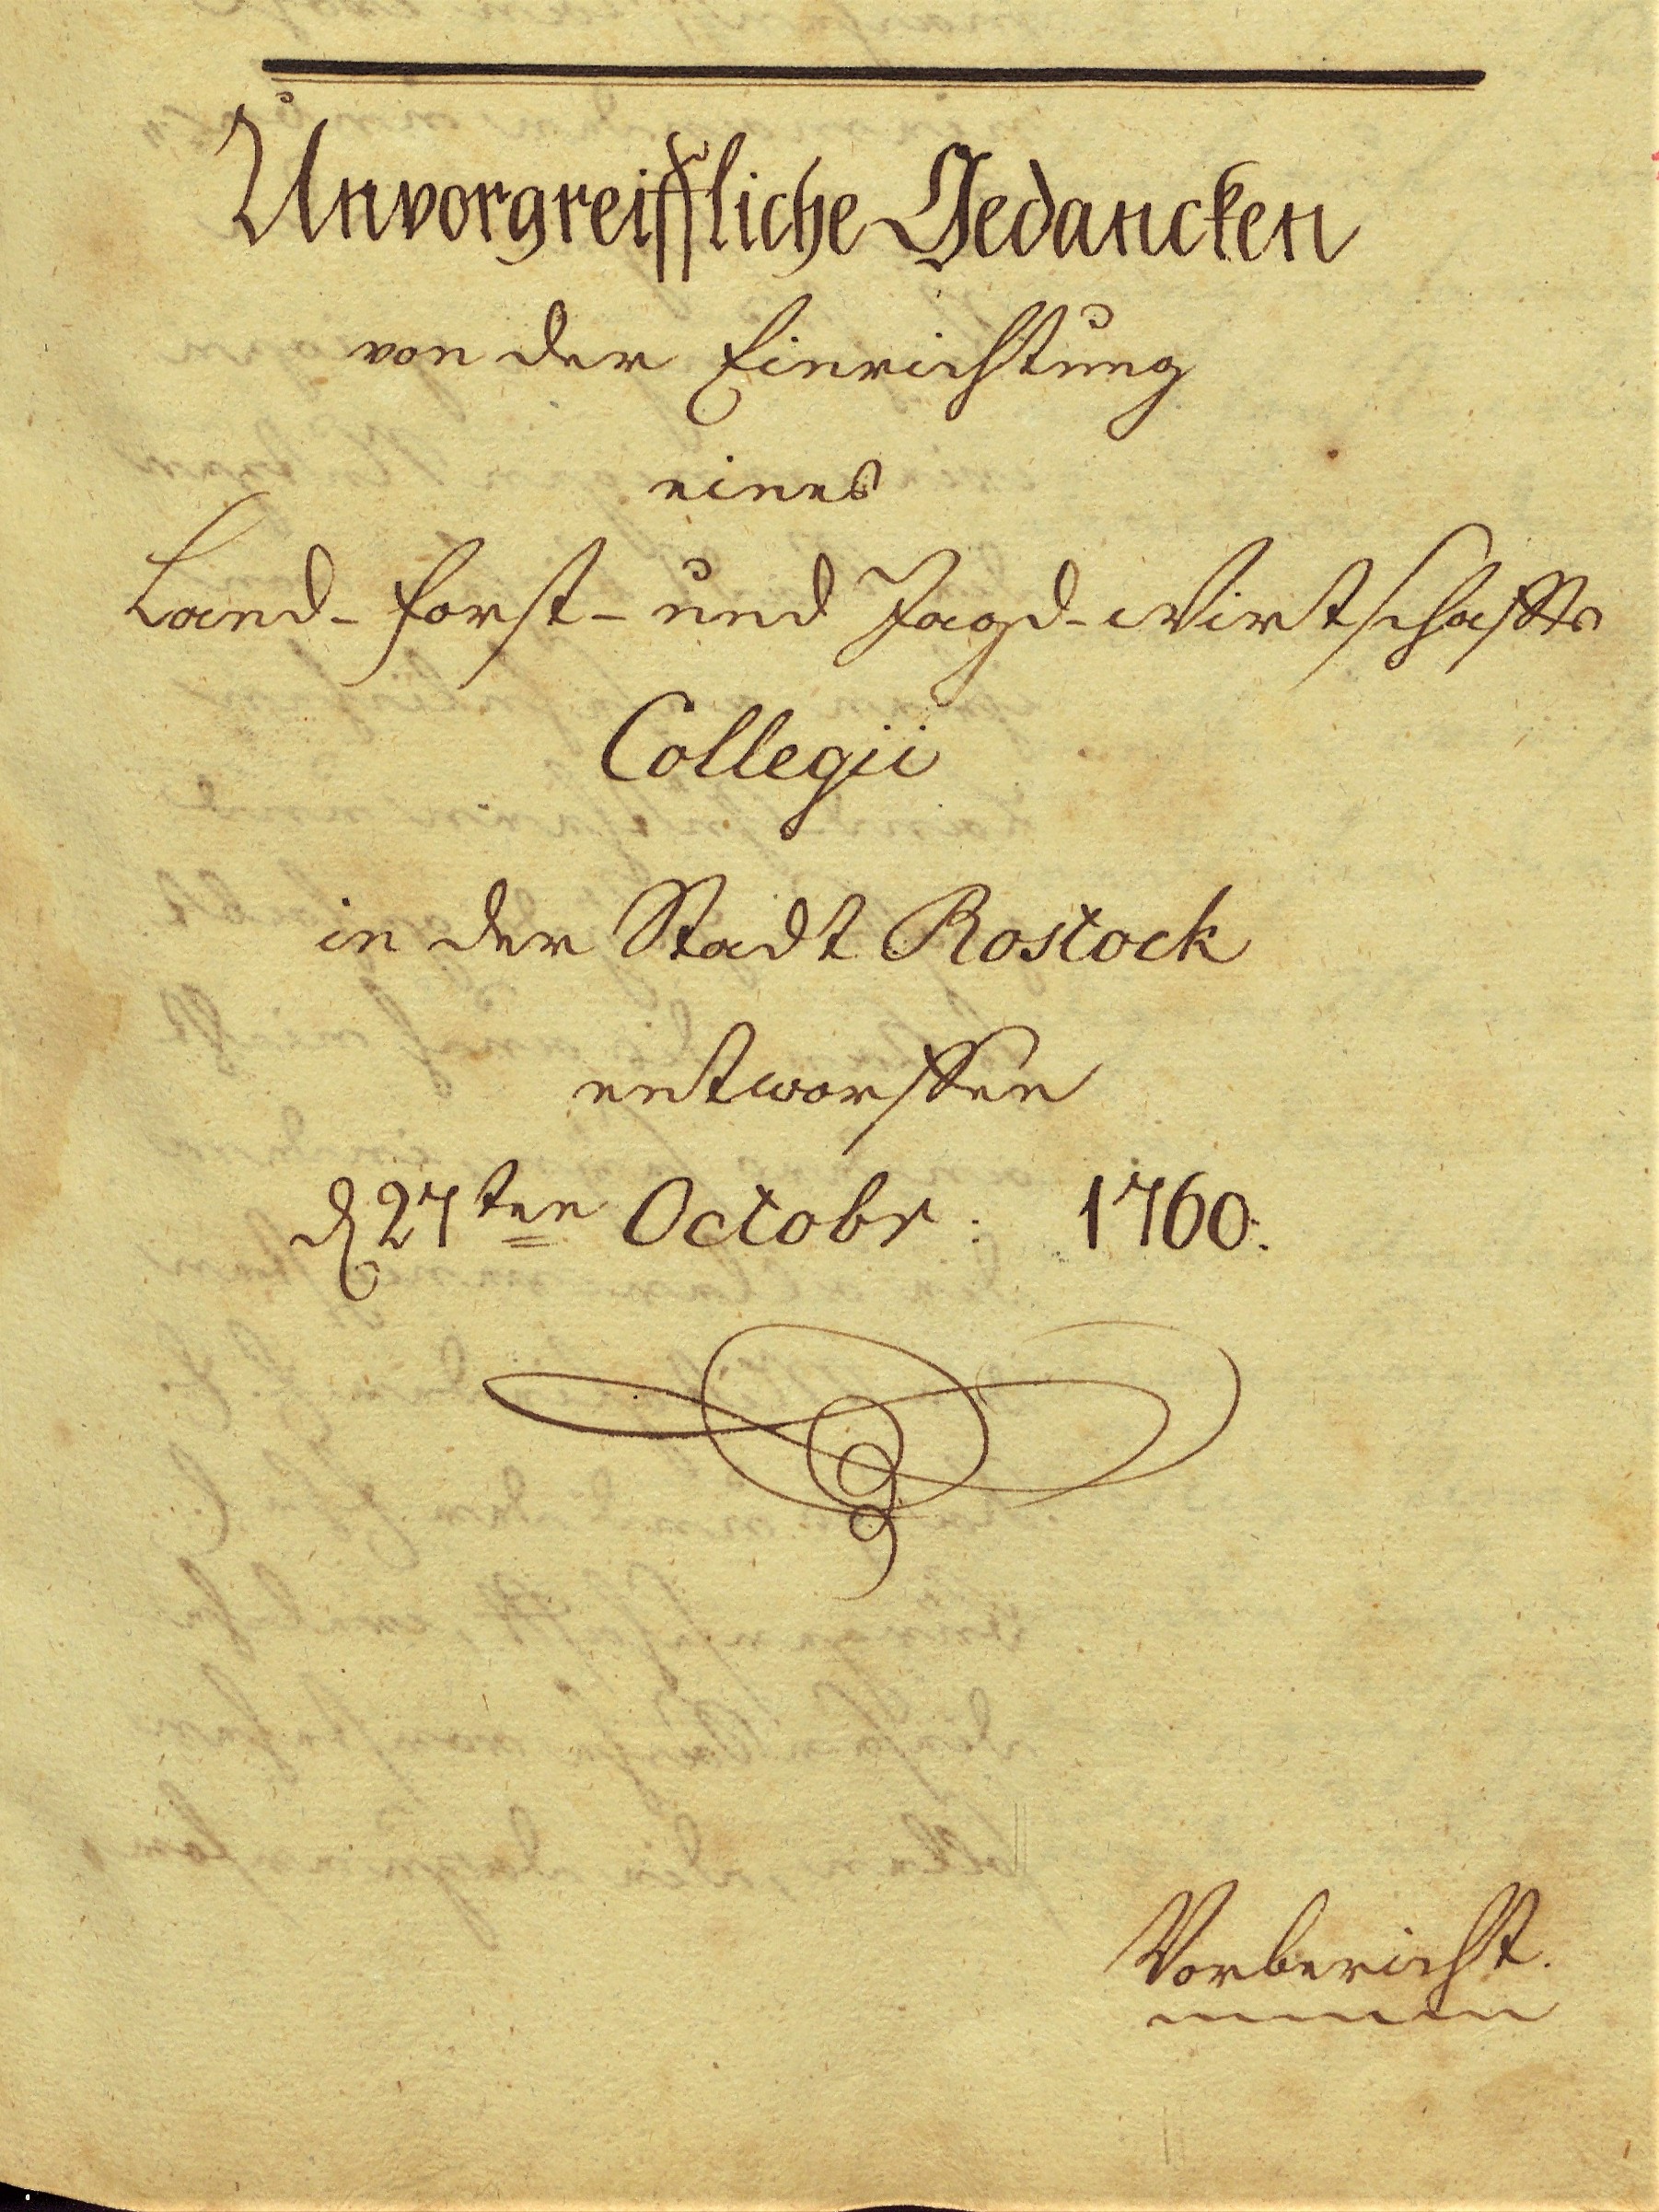 Unvorgreiffliche Gedancken
von der Einrichtung
eines
Land- Forst- und Jagd-Wirtschaffts
Collegii
in der Stadt Rostock
entworffen
d 27ten Octobr: 1760.
Vorbericht.